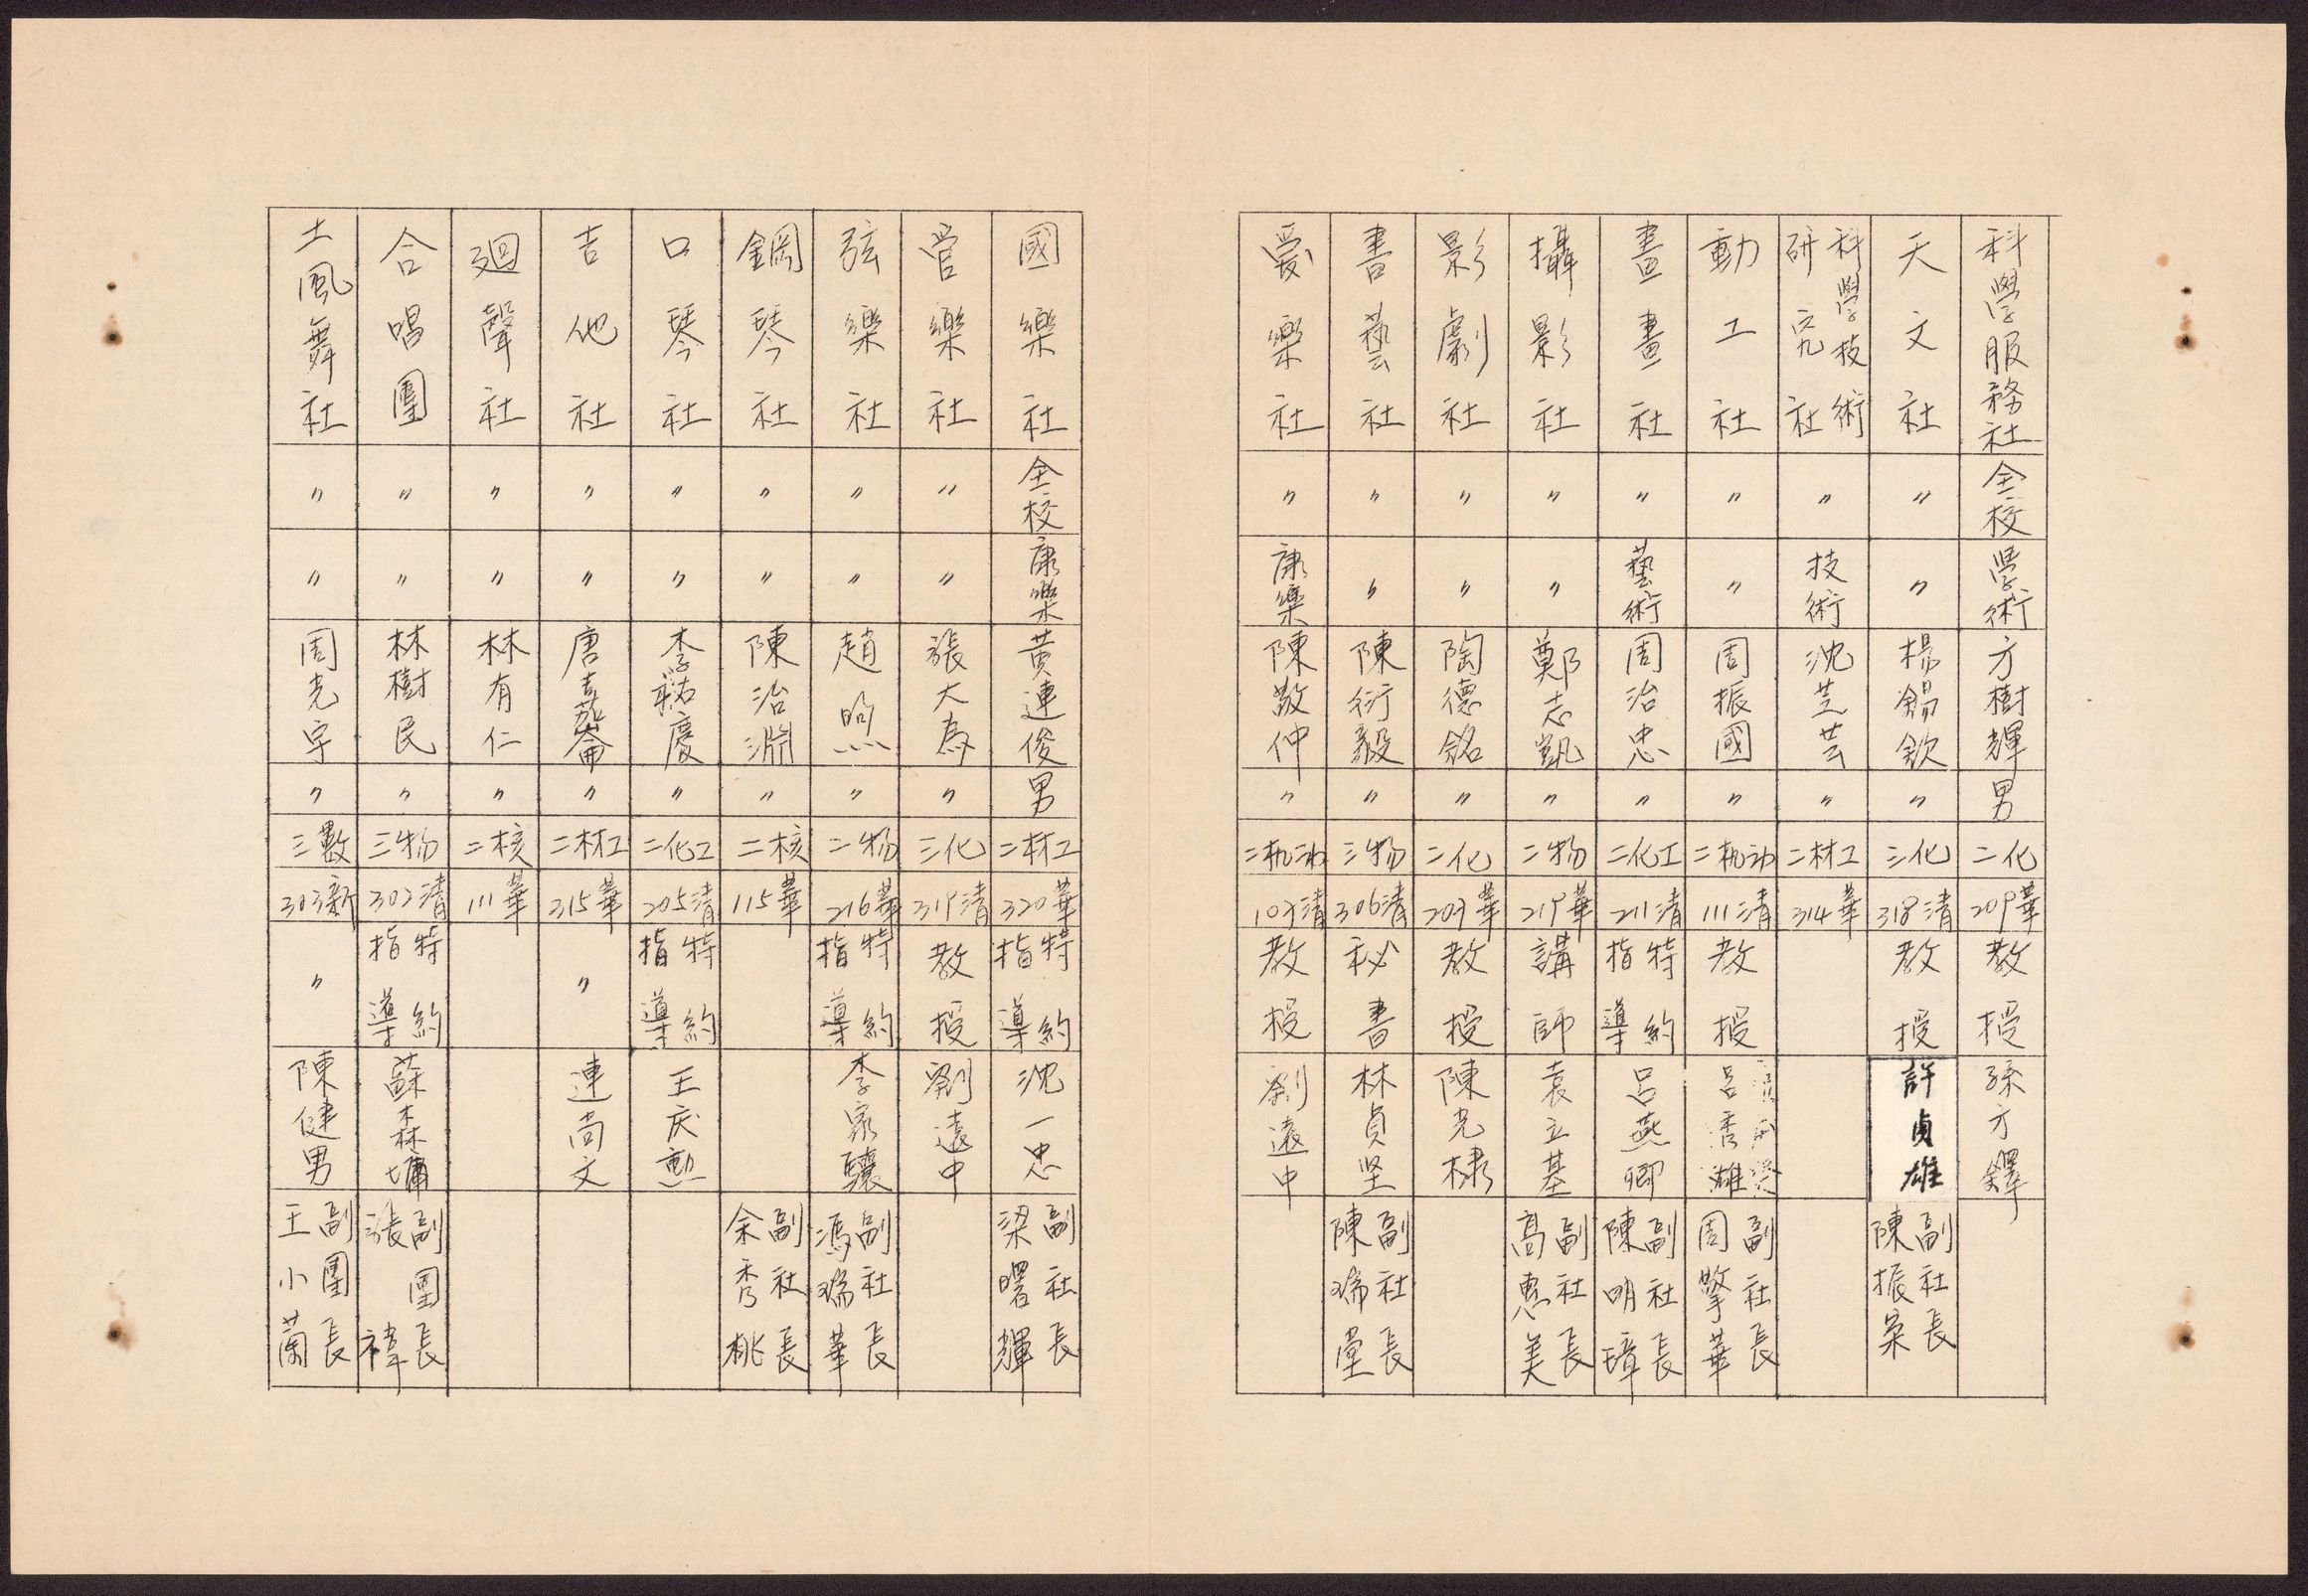 科學服務社 全校 學術 方樹輝 男 二化 209華 教授 孫方鐸
天文社 〃 〃 楊錫欽 〃 三化 318清 教授 許貞雄 副社長 陳振榮
科學技術研究社 〃 技術 沈芝芸 〃 二材工 314華
動工社 〃 〃 周振國 〃 二机动 111清 教授 副社長 周擎華
畫畫社 〃 藝術 周治忠 〃 二化工 211清 特約指導 呂燕卿 副社長 陳明璋
攝影社 〃 〃 鄭志凱 〃 二物 219華 講師 袁立基 副社長 高惠美
影劇社 〃 〃 陶德銘 〃 二化 207華 教授 陳光棣
書藝社 〃 〃 陳衍毅 〃 三物 306清 秘書 林貞坚 副社長 陳瑞堂
愛樂社 〃 康樂 陳敬仲 〃 二机动 107清 教授 劉遠中
國樂社 全校 康樂 黃連俊 男 二材工 320華 特約指導 沈一忠 副社長 梁曙輝
管樂社 〃 〃 張大為 〃 三化 319清 教授 劉遠中
弦樂社 〃 〃 趙煦 〃 二物 216華 特約指導 李家驤 副社長 馮瑞華
鋼琴社 〃 〃 陳治淵 〃 二核 115華 副社長 余秀桃
口琴社 〃 〃 李祐慶 〃 二化工 205清 特約指導 王庆勲
吉他社 〃 〃 唐嘉蕃 〃 二材工 315華 〃 連尚文
廻聲社 〃 〃 林有仁 〃 二核 111華
合唱團 〃 〃 林樹民 〃 三物 302清 特約指導 蘇森墉 副團長 張禕
土風舞社 〃 〃 周光宇 〃 三數 303新 〃 陳健男 副團長 王小蘭